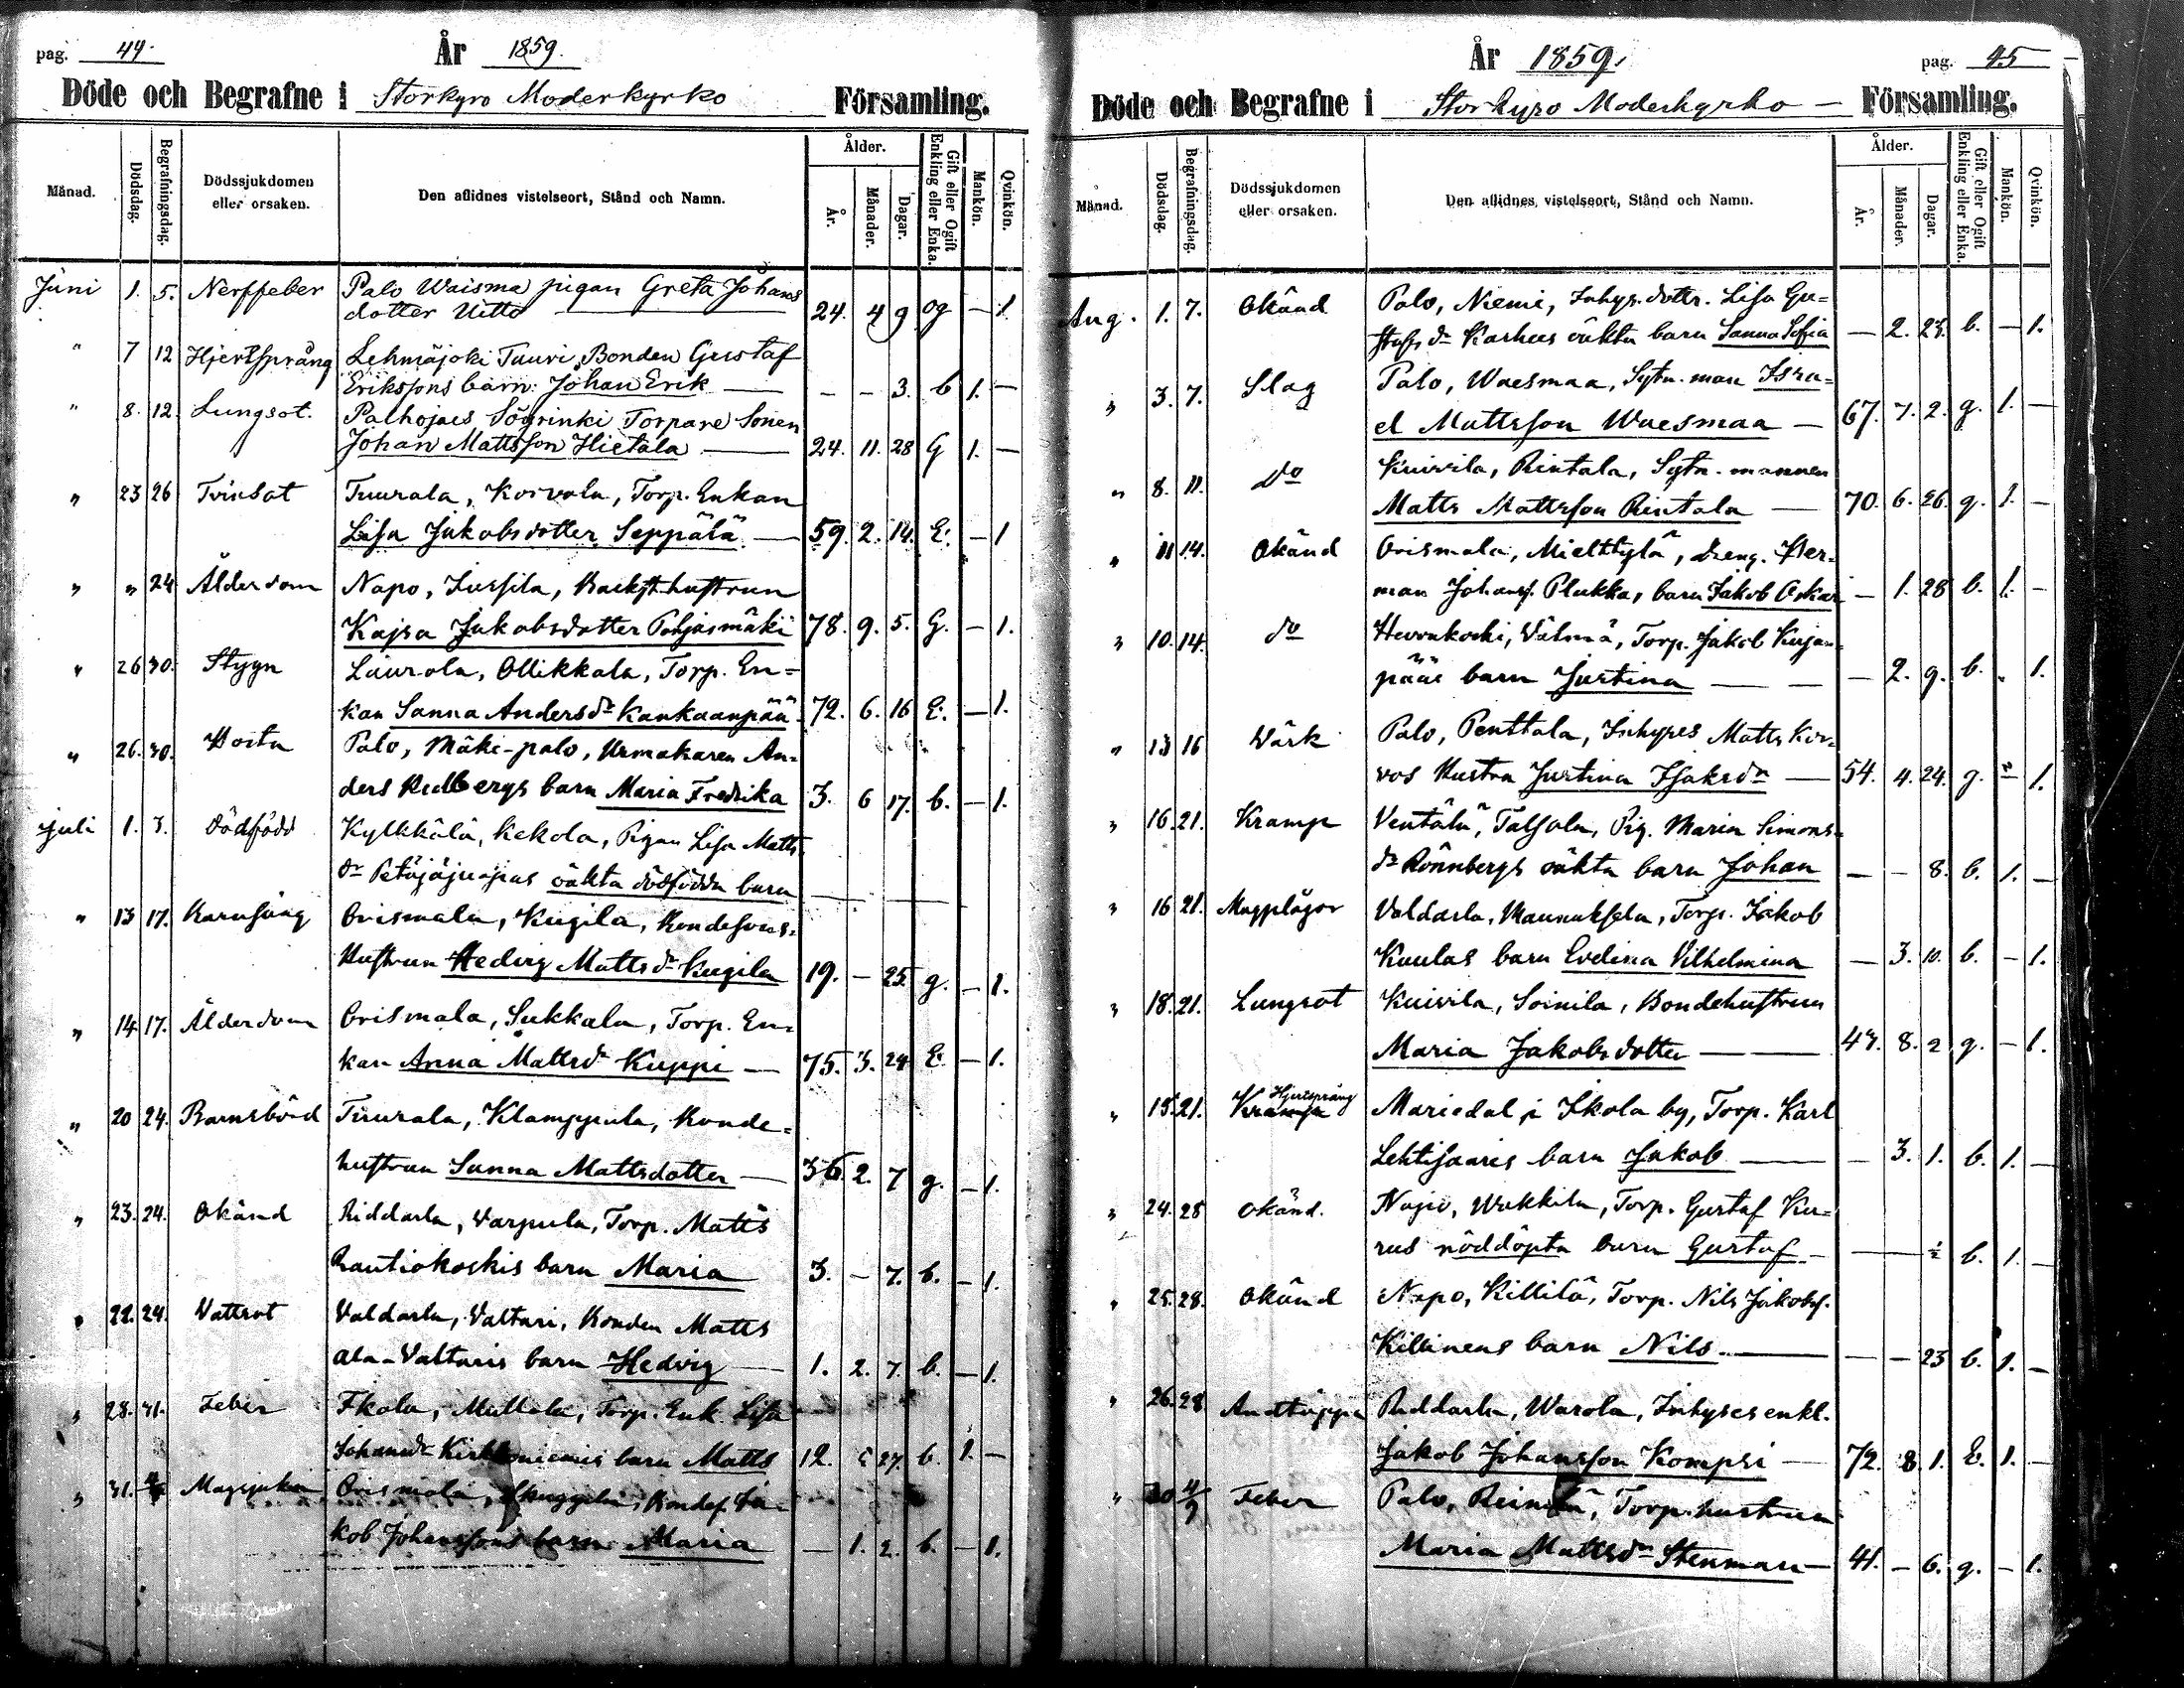 pag. 44.
År 1859.
Döde och Begrafne i Storkyro Moderkyrko Församling.
Månad.
Dödsdag.
Begrafningsdag.
Dödssjukdomen eller orsaken.
Den aflidnes vistelseort, Stånd och Namn.
Ålder.
År.
Månader.
Dagar.
Gift eller Ogift Enkling eller Enka.
Mankön.
Qvinkön.
Juni 1. 5. Nerffeber Palo Waisma pigan Greta Johans
dotter Uitto 24. 4 9 og — 1
" 7 12 Hjertsprång Lehmäjoki Tuuri Bonden Gustaf
Erikssons barn Johan Erik — — — 3. b 1. —
" 8. 12. Lungsot. Palhojais Sögrinki Torpare Sonen
Johan Mattsson Hietala — 24. 11. 28 G 1. —
" 23 26 Tvinsot Tuurala, Korvola, Torp. Enkan
Lisa Jakobsdotter Seppälä — 59. 2. 14. E. — 1
" " 24 Ålderdom Napo, Jussila, Backst. hustrun
Kajsa Jakobsdotter Pohjasmäki 78. 9. 5. G. — 1.
" 26 30. Stygn Laurola, Ollikkala, Torp. En=
kan Sanna Andersdr Kankaanpää 72. 6. 16 E. — 1.
" 26. 30. Hosta Palo, Mäki-palo, Urmakaren An-
ders Rudbergs barn Maria Fredrika 3. 6 17. b. — 1.
Juli 1. 3. Dödfödd Kylkkälä, Kekola, Pigan Lisa Matts
dr oäkta dödfödda barn
" 13 17. Barnsäng Orismala, Kugila, Bondesons-
hustrun Hedvig Mattsdr Kugila 19. — 25. g. — 1.
" 14. 17. Ålderdom Orismala, Sukkala, Torp. En-
kan Anna Mattsdr Kuppi — 75. 3. 24 E. — 1.
" 20 24. Barnsbörd Tuurala, Klamppula, Bonde-
hustrun Sanna Mattsdotter — 36. 2. 7 g. — 1.
" 23. 24. Okänd Riddarla, Varpula, Torp. Matts
Rautiokoskis barn Maria 3. — 7. b. — 1.
" 22. 24. Vattsot Valdarla, Valtari, Bonden Matts
Ala-Valtaris barn Hedvig — 1. 2. 7. b. — 1.
" 28. 31. Feber Ikola, Mattala, Torp. Enk. Lisa
Johansdr barn Matts 12. 27. b. 1. —
" 31. Orismala, Bondes. Ja-
kob Johanssons barn Maria — 1. 2. b. — 1.
År 1859.
pag. 45
Döde och Begrafne i Storkyro Moderkyrko — Församling.
Månad.
Dödsdag.
Begrafningsdag.
Dödssjukdomen eller orsaken.
Den aflidnes vistelseort, Stånd och Namn.
Ålder.
År.
Månader.
Dagar.
Gift eller Ogift Enkling eller Enka.
Mankön.
Qvinkön.
Aug. 1. 7. Okänd Palo, Niemi, Inhys. dottr. Lisa Gu=
stafs dr Karhus oäkta barn Sanna Sofia — 2. 23. b. — 1.
" 3. 7. Slag Palo, Waesmaa, Sytn. man Isra=
el Mattsson Waesmaa — 67. 7. 2. g. 1. —
" 8. 11. do Kuivila, Rintala, Sytn. mannen
Matts Mattsson Rintala — 70. 6. 26. g. 1. —
" 11 14. Okänd Orismala, Mielttylä, Dreng. Her-
man Johanss. Plukka, barn Jakob Oskar — 1. 28 b. 1. —
" 10. 14. do Hevonkoski, Välmä, Torp. Jakob Kujan-
pääs barn Justina — — 2. 9. b. " 1.
" 13 16 Wärk Palo, Penttala, Inhyses Matts Kor-
vos Hustru Justina Isaksdr — 54. 4. 24. g. " 1.
" 16. 21. Kramp Ventälä, Talsola, Pig. Maria Simons-
dr Rönnbergs oäkta barn Johan — — 8. b. 1. —
" 16 21. Magplågor Valdarla, Maunuksela, Torp. Jakob
Kuulas barn Evelina Vilhelmina — 3. 10. b. — 1.
" 18. 21. Lungsot Kuivila, Soinila, Bondehustrun
Maria Jakobsdotter — 47. 8. 2 g. — 1.
" 15. 21. Kramp Hjertsprång Mariedal i Ikola by, Torp. Karl
Lehtisaaris barn Jakob — — 3. 1. b. 1. —
" 24. 28 Okänd. Napo, Wakkila, Torp. Gustaf Ku-
rus nöddöpta barn Gustaf — ½ b. 1. —
" 25. 28. Okänd Napo, Killilä, Torp. Nils Jakobs.
Killinens barn Nils — — — 23 b. 1. —
" 26. 28. Andtäppa Riddarla, Warola, Inhyses enkl.
Jakob Johansson Kompsi — 72. 8. 1. E. 1. —
" 30 4/9 Feber Palo, Torp. hustrun
Maria Mattsdr Stenman — 41. — 6. g. — 1.